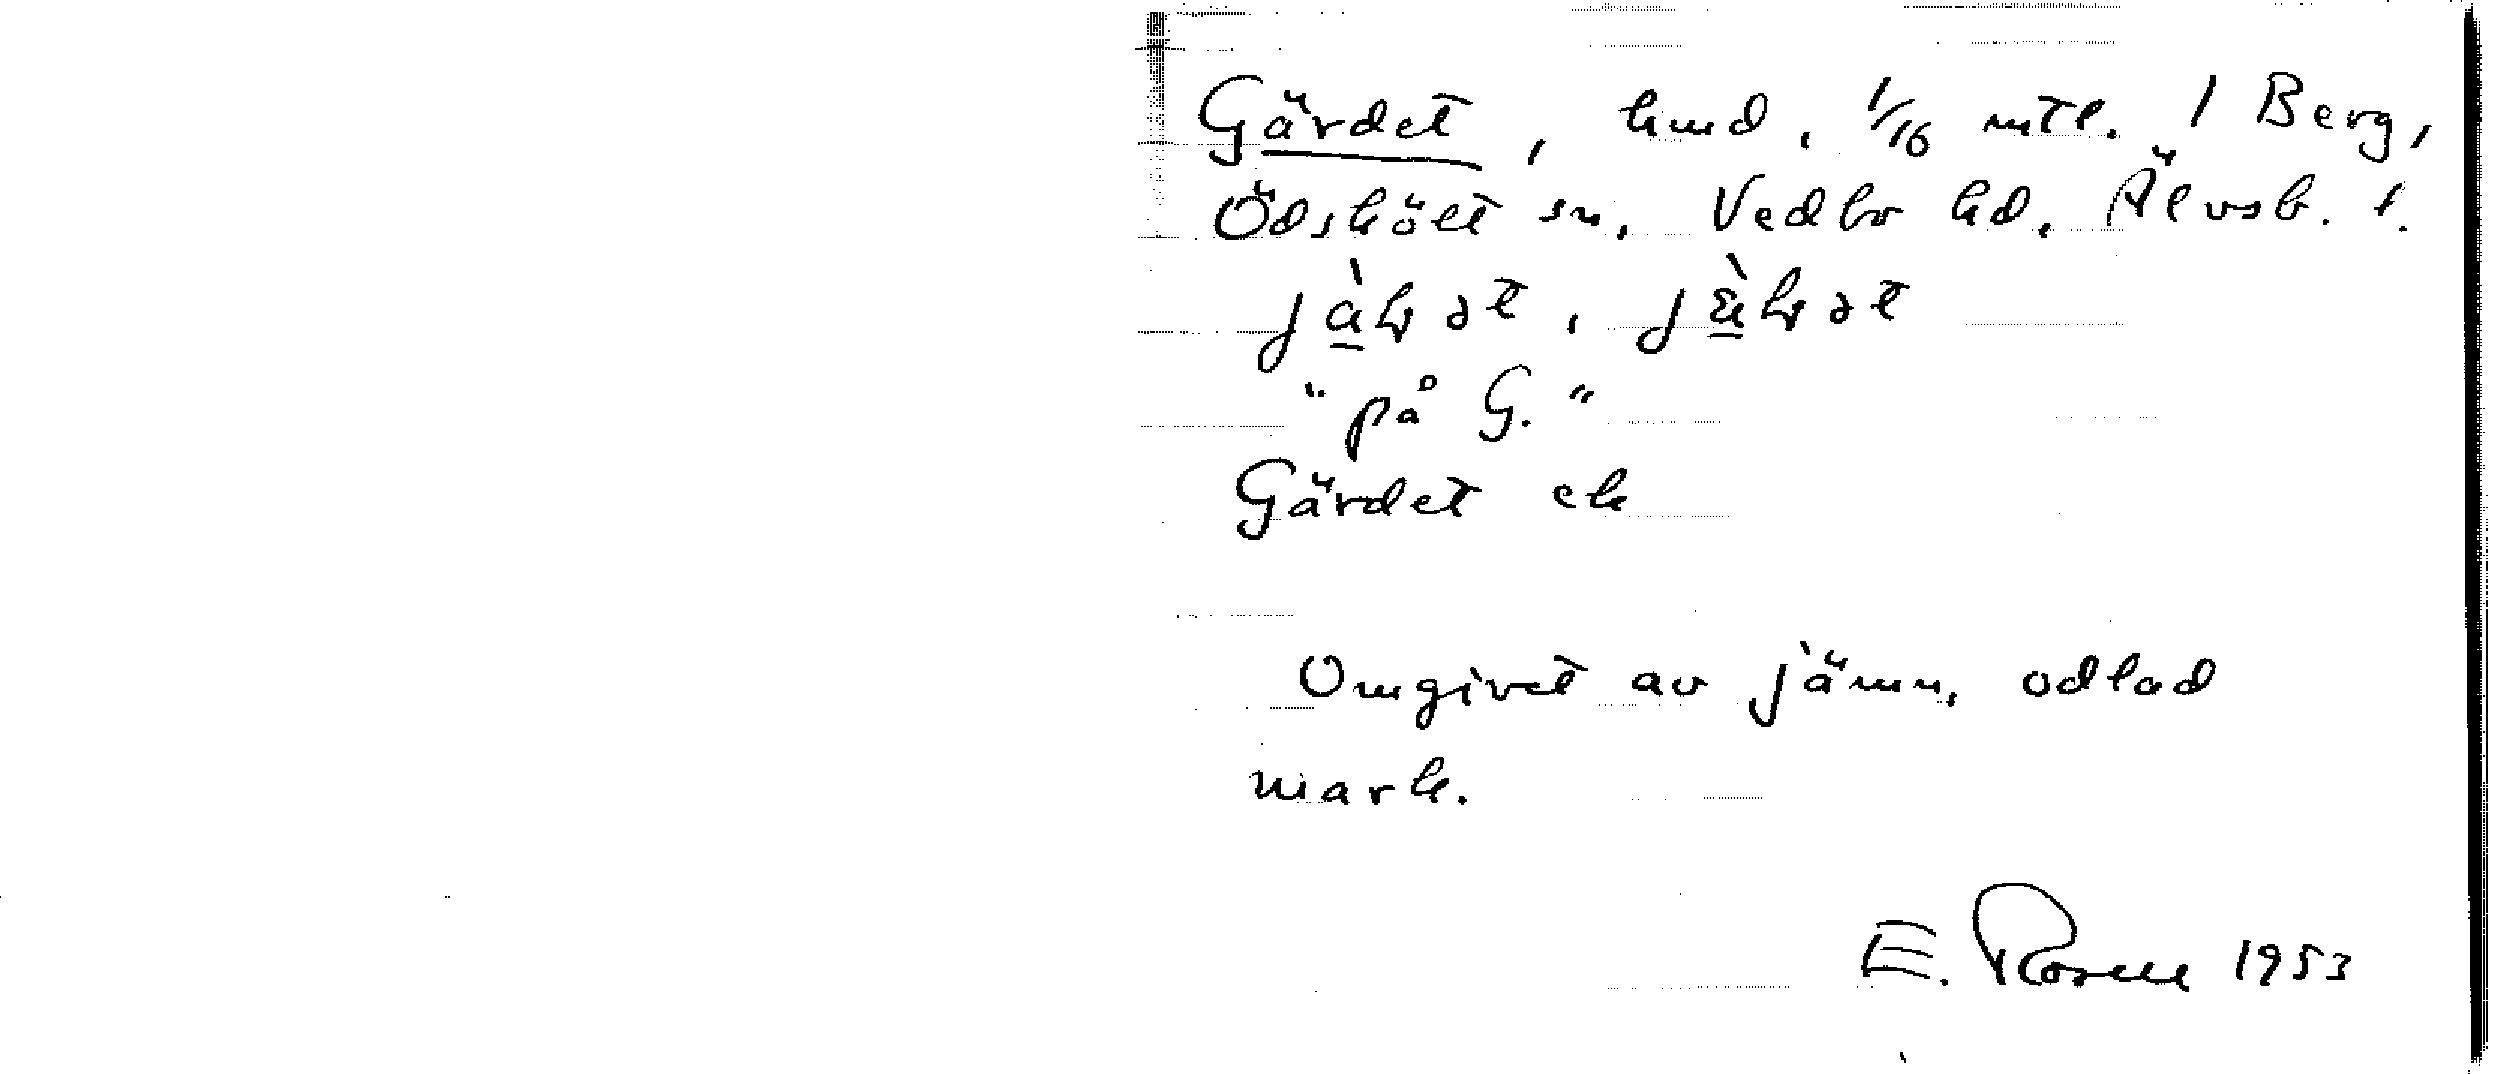 Gärdet, hmd. 1/16 mtl. 1 Berg,
Ödskölt sn, Vedbo hd, Älvsb. l.
"på G."
Gärdet ek
Omgivet av jämn, odlad
mark.
E. Rosell 1953